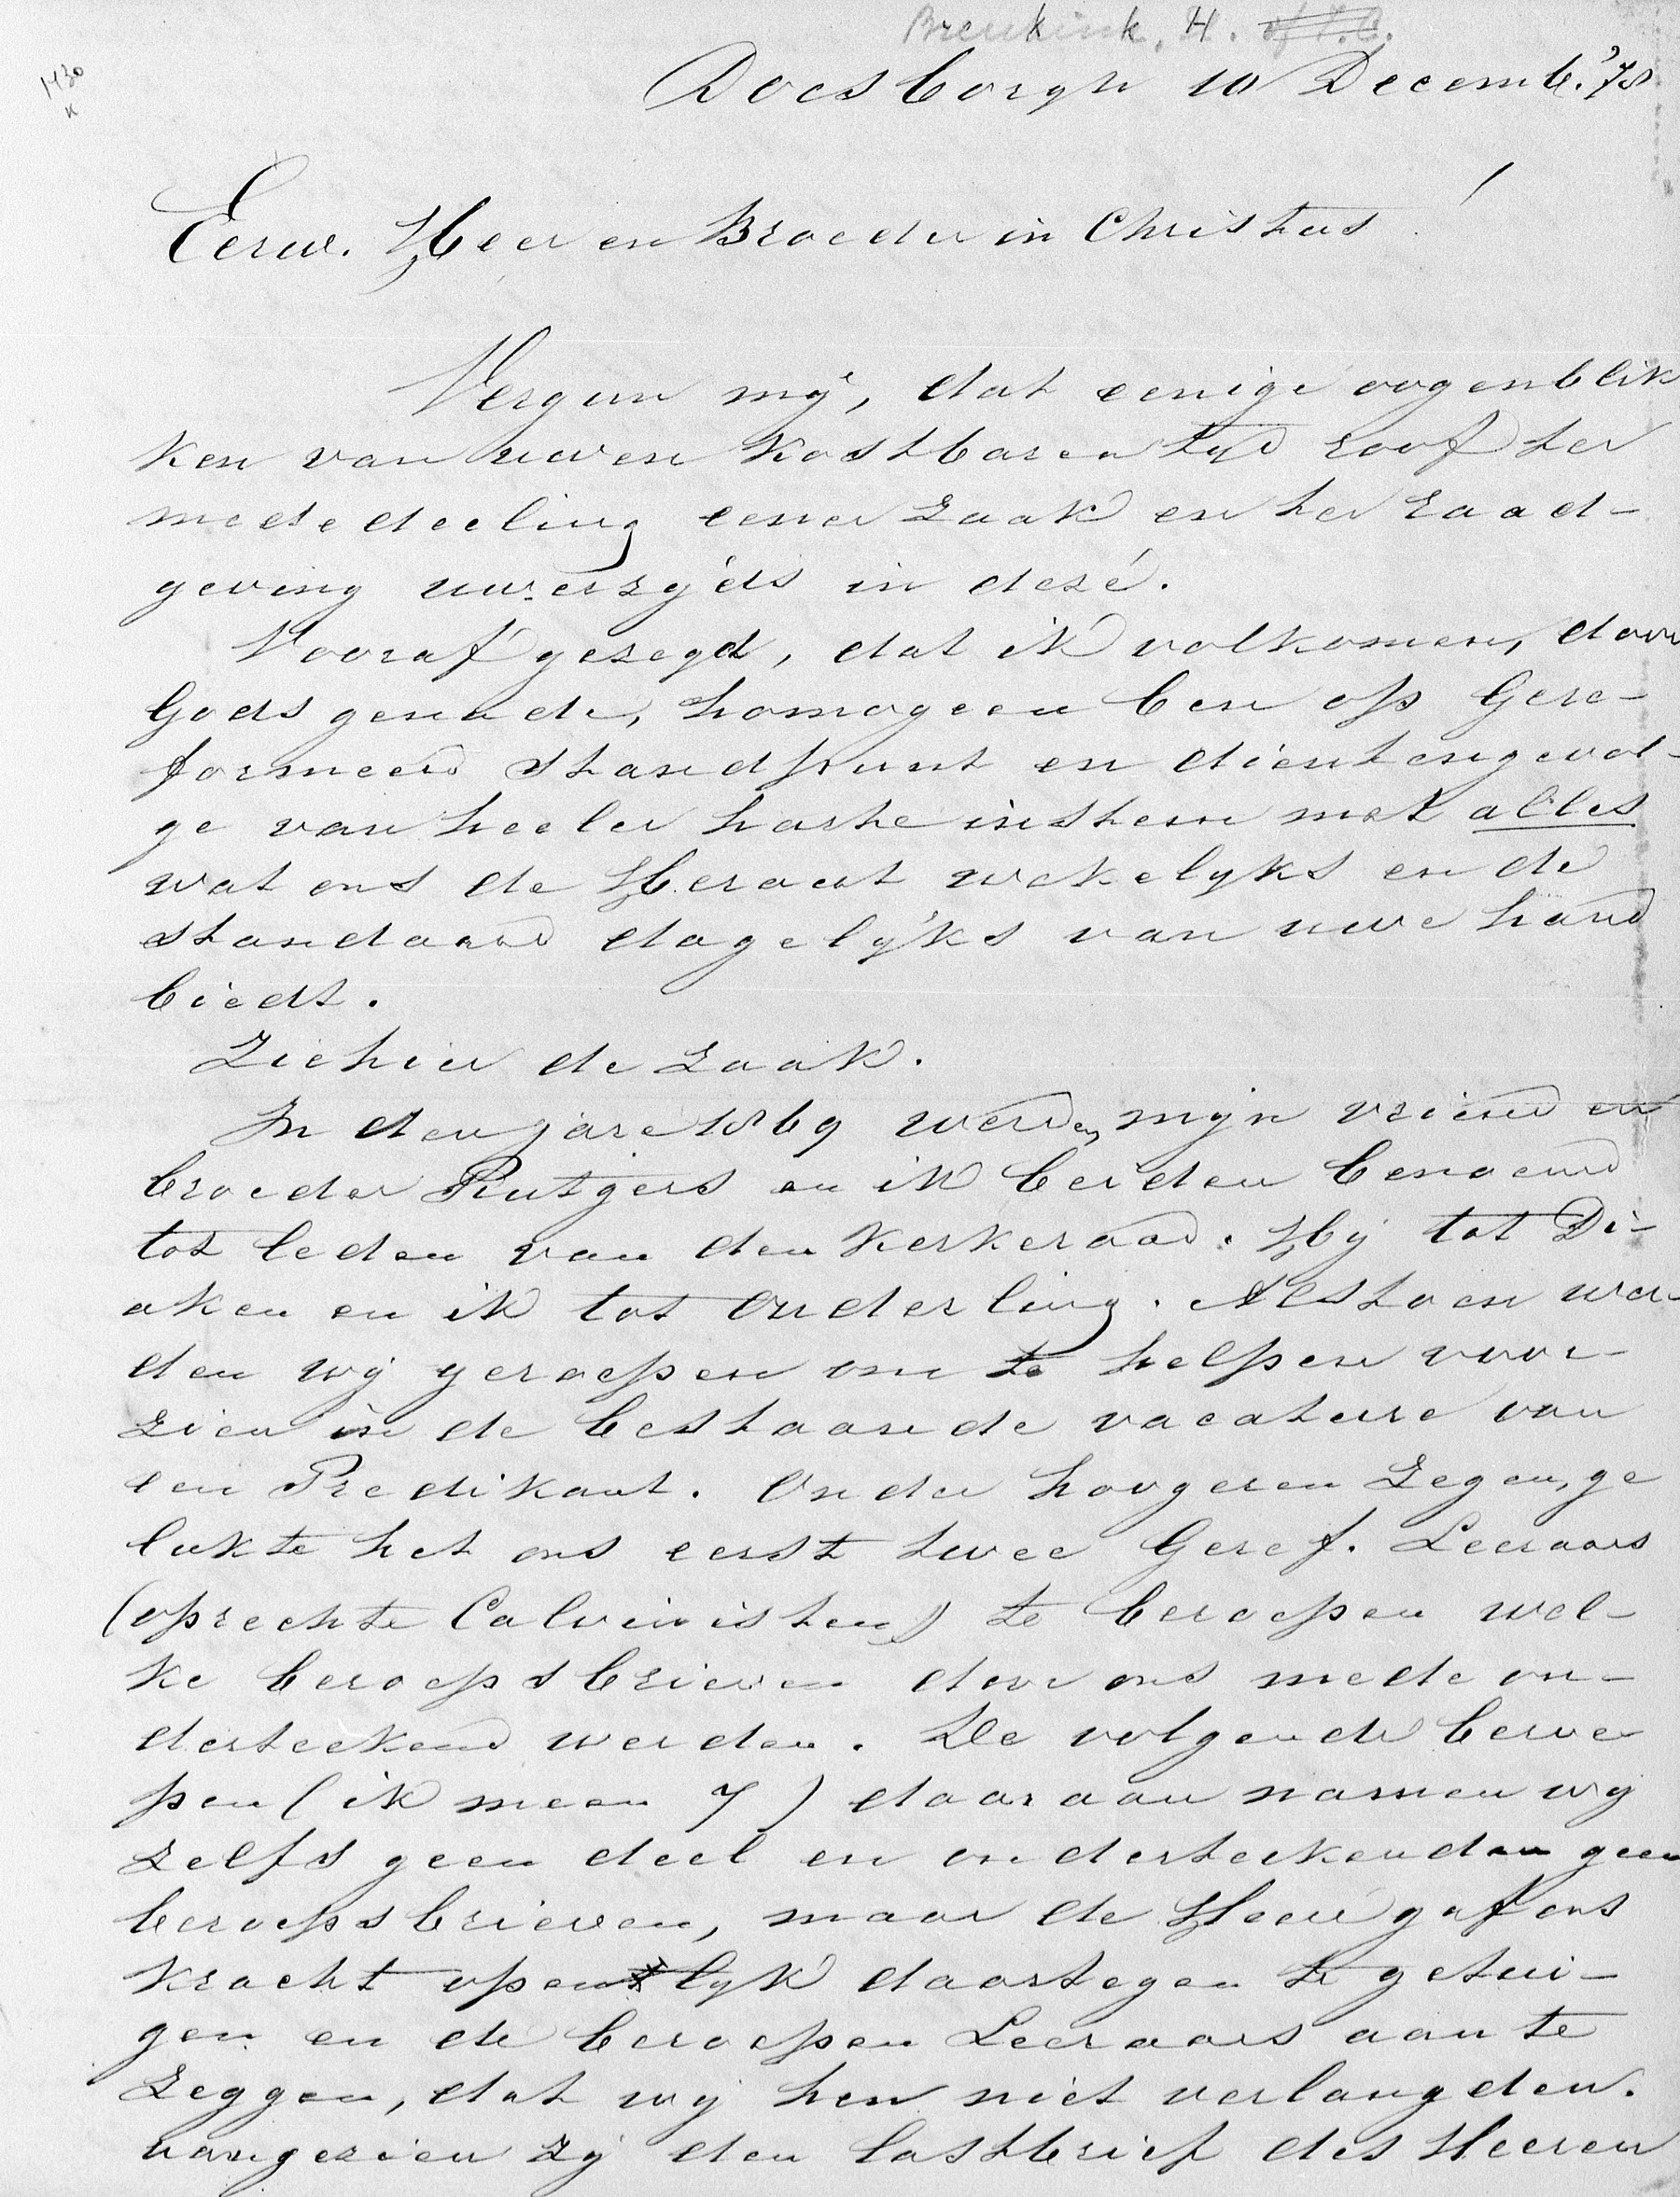 Breukink. H. of T.C.
1430
Doesborgh 10 Decemb. '78
Eerw. Heer en Broeder in Christus!
Vergun mij, dat eenige oogenblik
ken van uwen kostbaren tijd roof ter
mededeeling eener zaak en ter raad-
geving uwerzijds in deze.
Vooraf gezegd, dat ik volkomen, door
Gods genade, homogeen ben op Gere-
formeerd standpunt en dientengevol-
ge van heeler harte instem met alles
wat ons de Heraut wekelijks en de
standaard dagelijks van uwe hand
biedt.
Ziehier de zaak.
In den jare 1869 werden mijn vriend en
broeder Rutgers en ik beiden benoemd
tot leden van den Kerkeraad. Hij tot Di-
aken en ik tot Ouderling. Alstoen wer-
den wij geroepen om te helpen voor-
zien in de bestaande vacature van
een Predikant. Onder hoogeren Zegen, ge
lukte het ons eerst twee Geref. Leeraars
(oprechte Calvinisten) te beroepen wel-
ke beroepsbrieven door ons mede on-
derteekend werden. De volgende beroe
pen (ik meen 7) daaraan namen wij
zelfs geen deel en onderteekenden geen
beroepsbrieven, maar de Heer gaf ons
kracht openlijk daartegen te getui-
gen en de beroepen Leeraars aan te
Zeggen, dat wij hen niet verlangden.
aangezien zij den lastbrief des Heeren